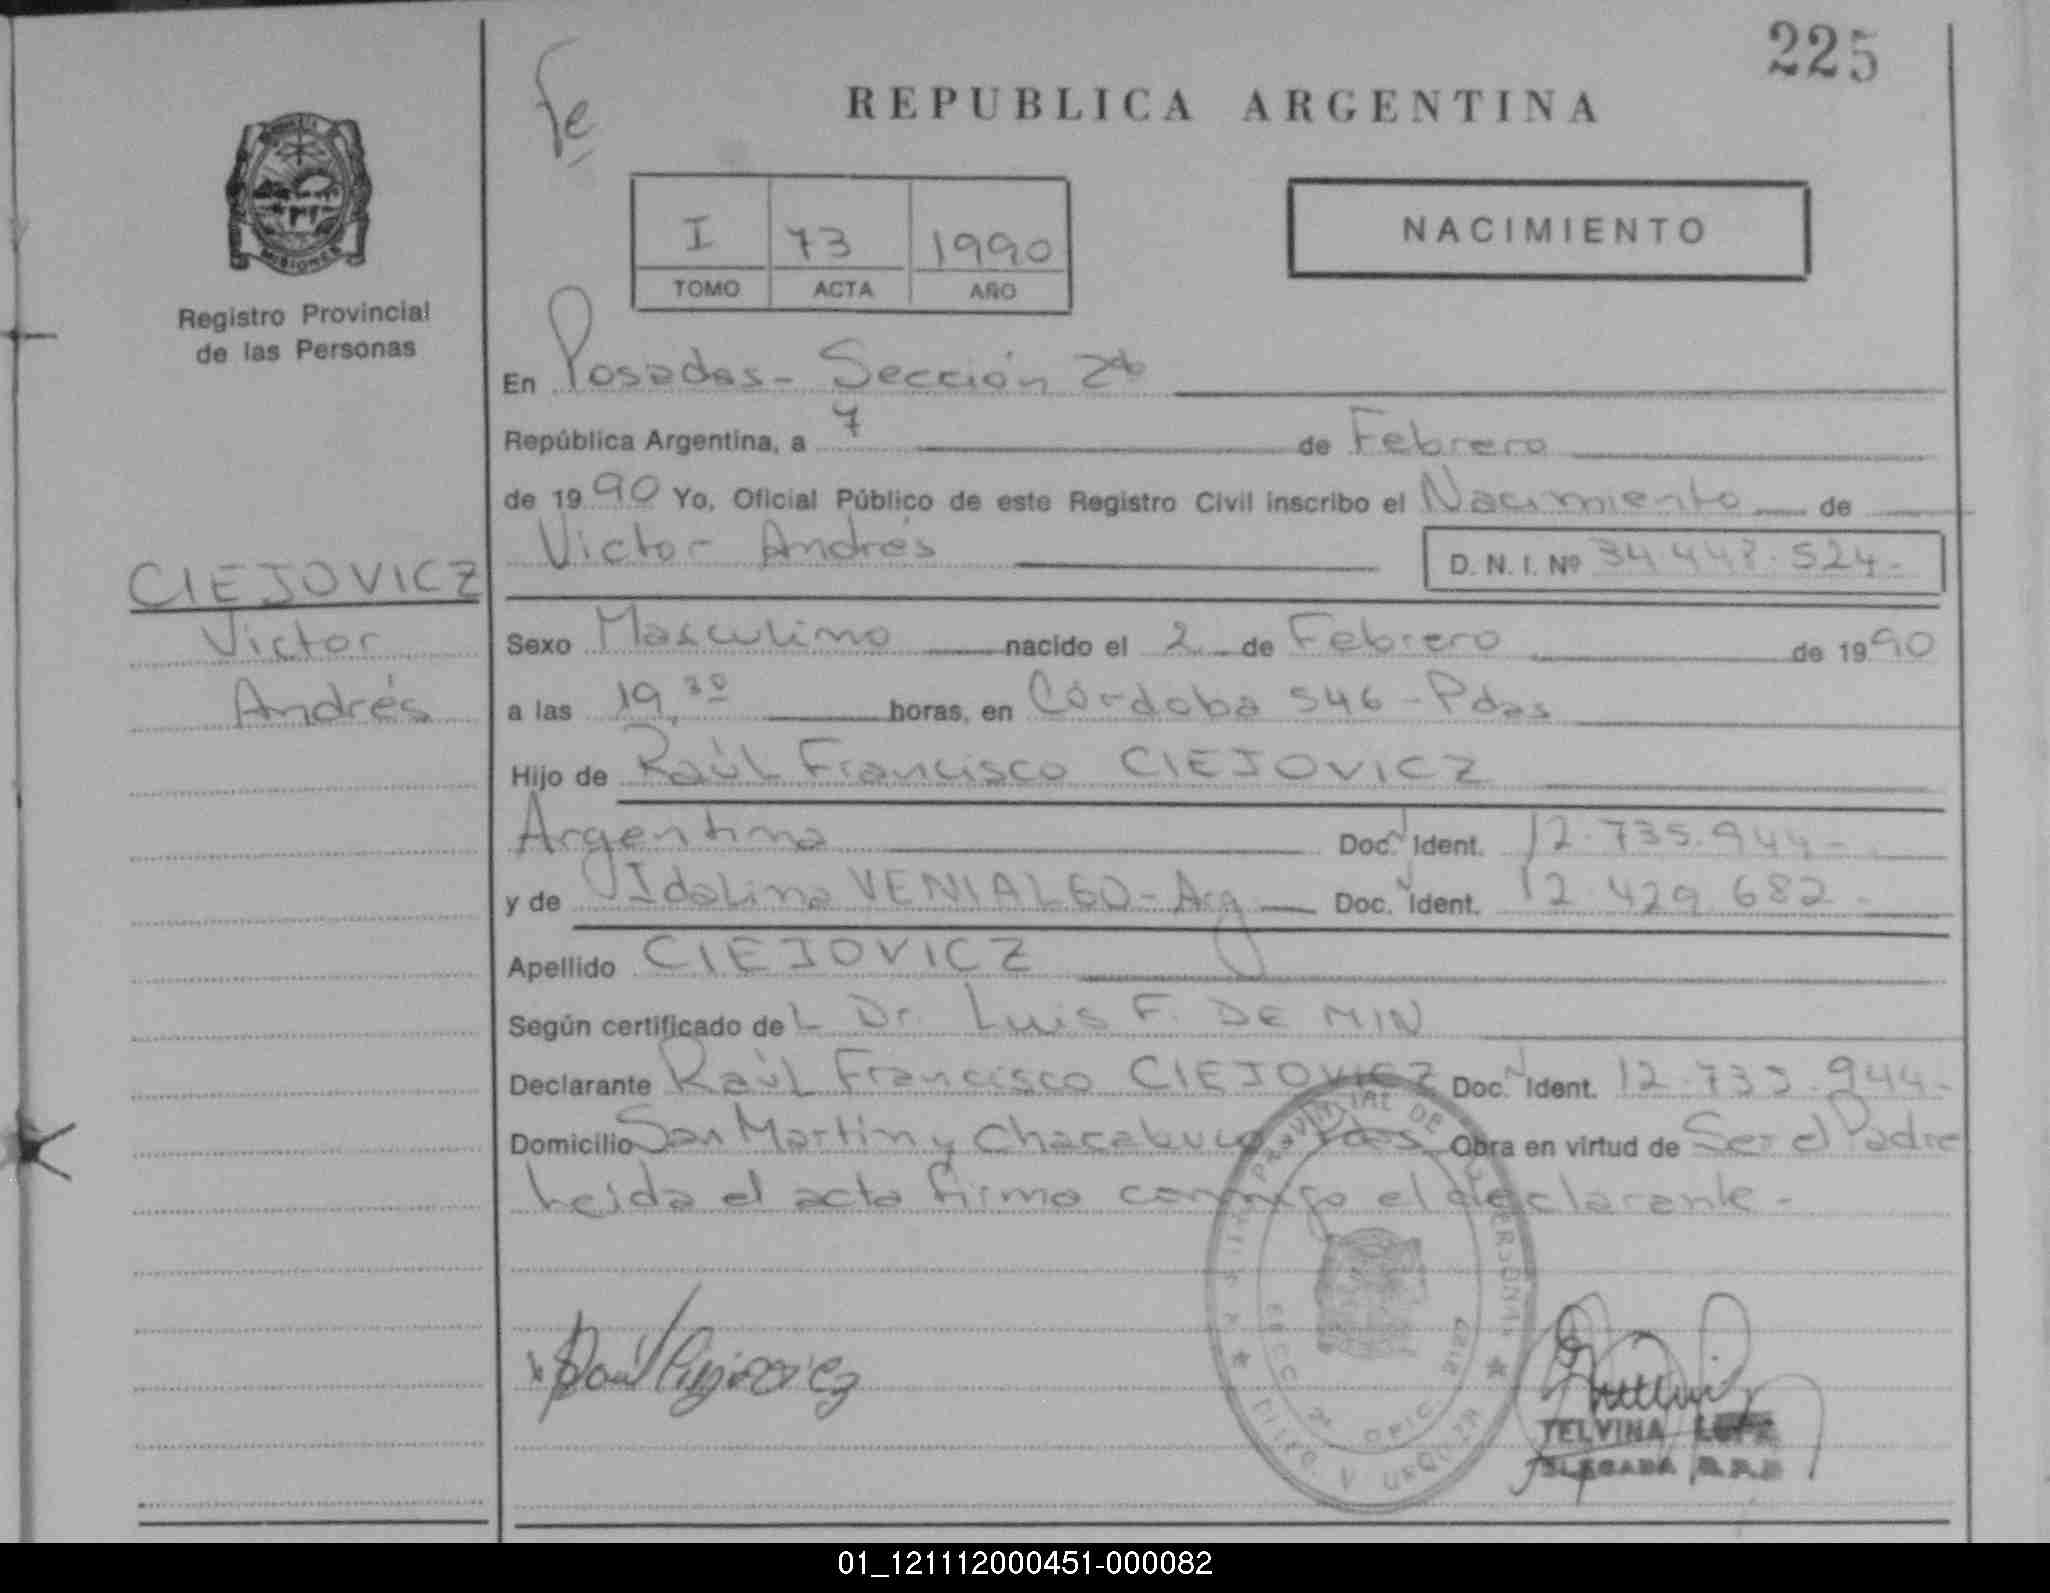 225
Fe
REPUBLICA ARGENTINA
MISIONES
Registro Provincial
de las Personas
I 73 1990
TOMO ACTA AÑO
NACIMIENTO
En Posadas - Sección 2ª
República Argentina, a 7 de Febrero
de 1990 Yo, Oficial Público de este Registro Civil inscribo el Nacimiento de
Victor Andrés D. N. I. Nº 34.448.524-
CIEJOVICZ
Victor
Andrés
Sexo Masculino nacido el 2 de Febrero de 1990
a las 19,30 horas, en Córdoba 546 - Pdas
Hijo de Raúl Francisco CIEJOVICZ
Argentino Doc. Ident. 12.735.944-
y de Idalina VENIALGO - Arg Doc. Ident. 12.429.682-
Apellido CIEJOVICZ
Según certificado del Dr. Luis F. DE MIN
Declarante Raúl Francisco CIEJOVICZ Doc. Ident. 12.735.944-
Domicilio San Martín y Chacabuco Pdas Obra en virtud de Ser el Padre
Leida el acta firma conmigo el declarante-
TELVINA
DELEGADA
01_121112000451-000082